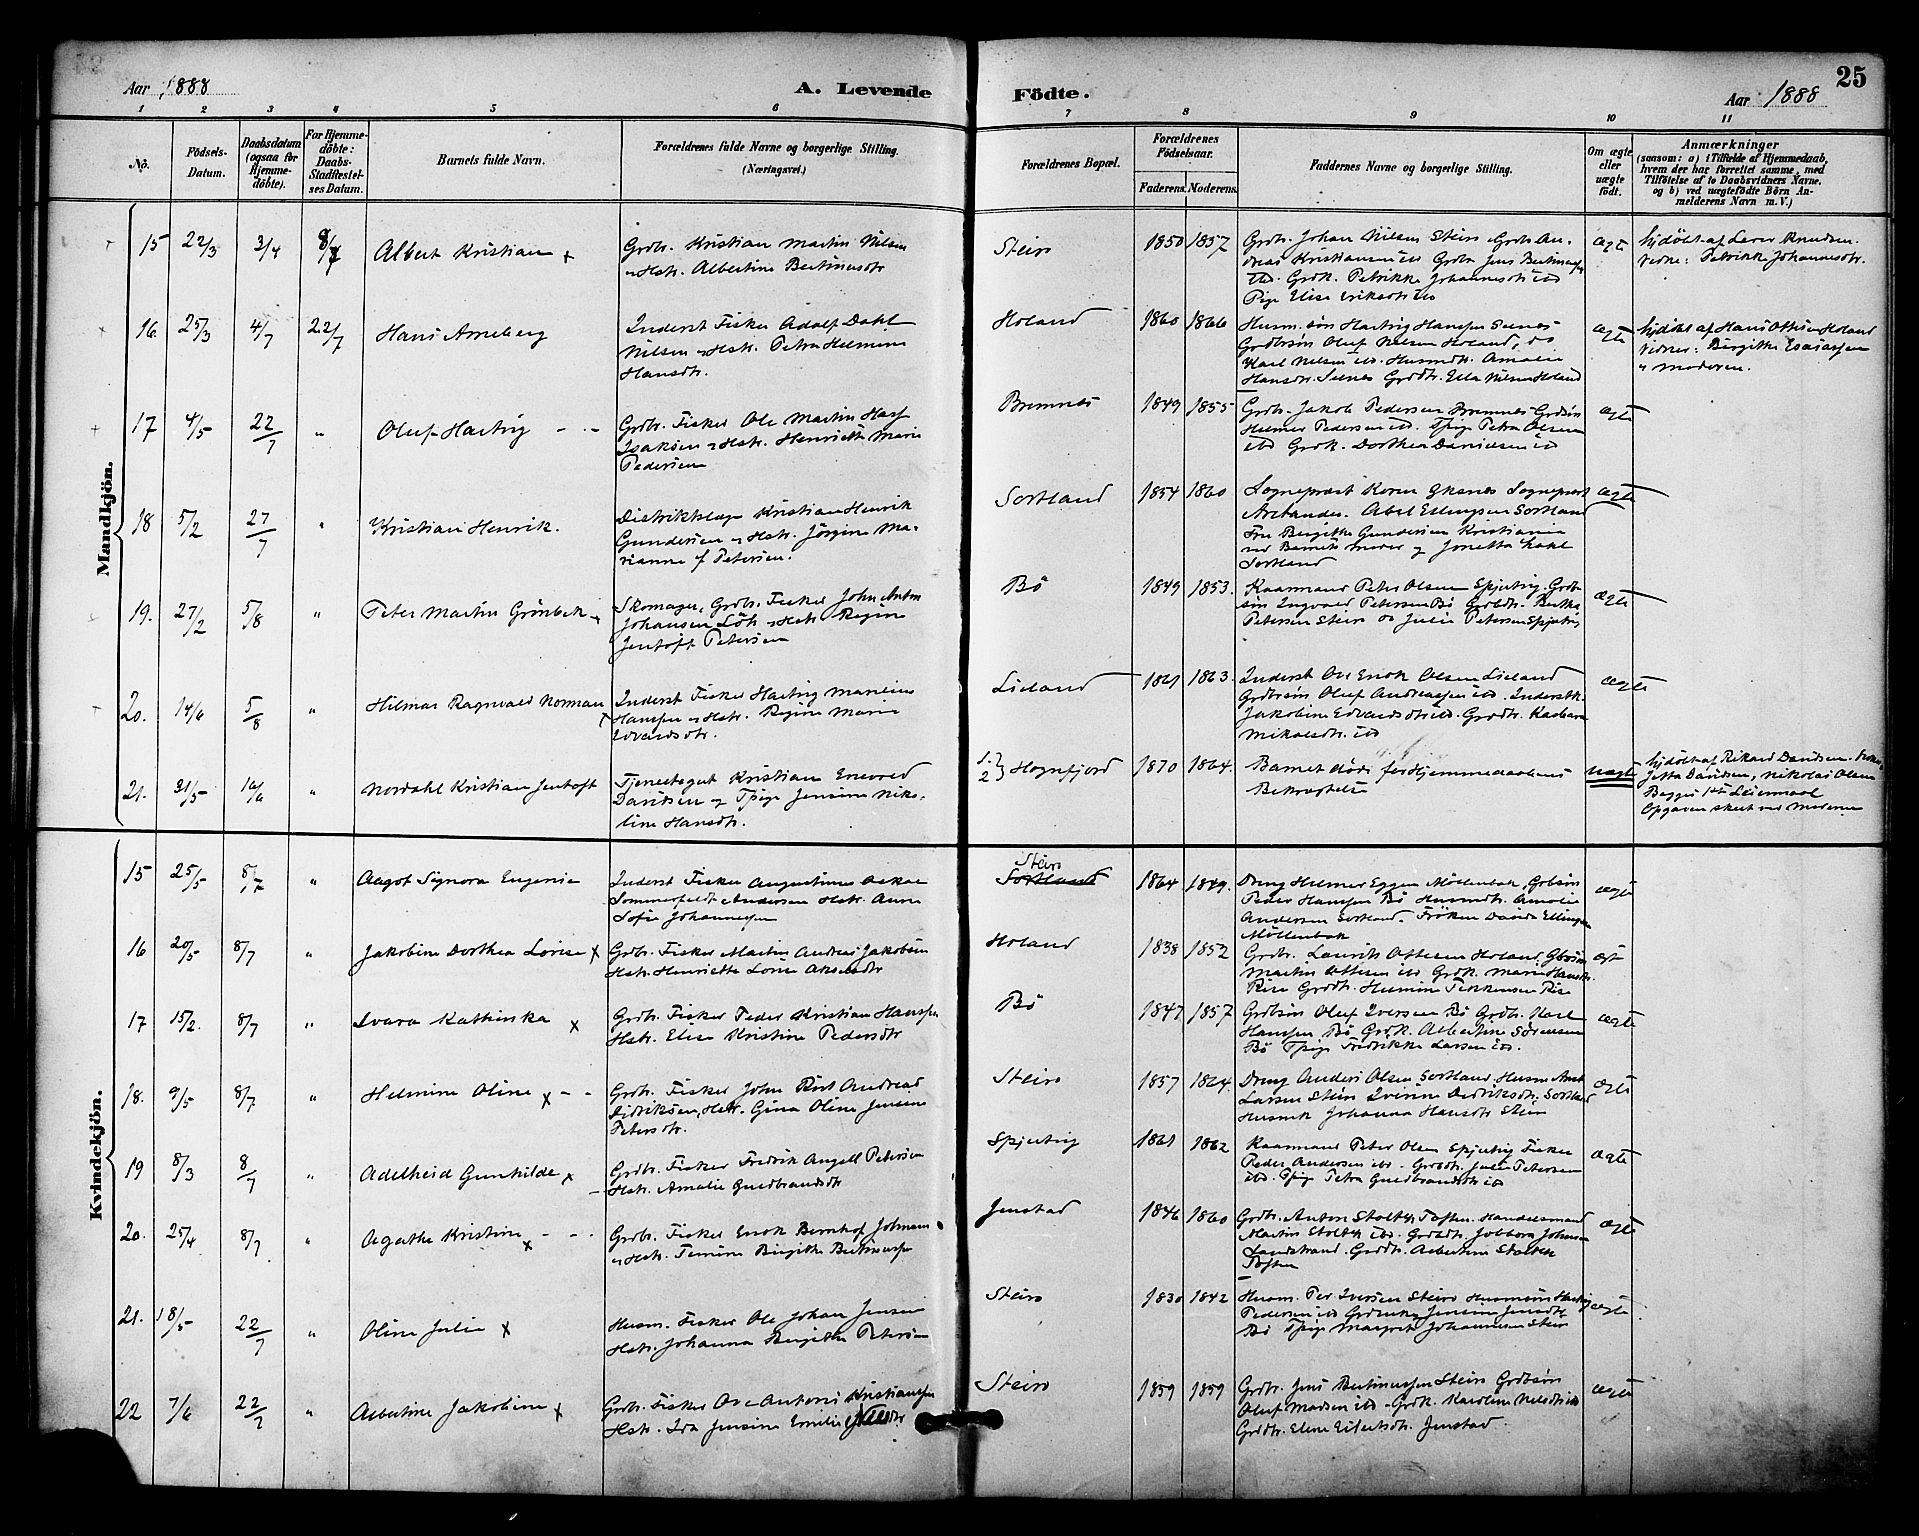 Aar 1888
A. Levende
Födte.
Aar 1888
25
1 2 3 4 5 6 7 8 9 10 11
No.
Födsels-
Datum.
Daabsdatum
(ogsaa for
Hjemme-
döbte).
For Hjemme-
döbte:
Daabs-
Stadfæstel-
ses Datum.
Barnets fulde Navn.
Forældrenes fulde Navne og borgerlige Stilling.
(Næringsvei.)
Forældrenes Bopæl.
Forældrenes
Födselsaar.
Faderens. Moderens.
Faddernes Navne og borgerlige Stilling.
Om ægte
eller
uægte
födt.
Anmærkninger
(saasom: a) i Tilfælde af Hjemmedaab,
hvem der har forrettet samme, med
Tilföielse af to Daabsvidners Navne,
og b) ved uægtefödte Börn An-
melderens Navn m. V.)
Mandkjön.
15 22/3 3/4 8/7 Albert Kristian
Grdbr. Kristian Martin Nilsen
Hstr. Albertine Bertinusdtr
Steiro 1850 1857
Grdbr. Johan Nilsen Steiro Grdbr. An-
dreas Kristiansen ibd Grdbr Jens Bertinussen
ibd. Grdk. Petrikke Johannesdtr ibd
Pige Elise Eriksdtr ibd
ægte
hjdøbt af Lærer Knudsen.
Vidne: Petrikke Johannesdtr.
16. 25/3 4/7 22/7 Hans Arneberg
Inderst Fisker Adolf Dahl
Nilsen Hstr. Petra Helmine
Hansdtr.
Holand 1860 1866
Husm. søn Hartvig Hanssen
Grdbrsøn Oluf Nilsen Holand, do
Karl Nilsen ibd. Husmdtr. Amalie
Hansdtr. Grddtr. Ella Nilsen Holand
ægte
hjdøbt af Hans Ottesen Holand
Vidner: Birgitte Esaiassen
Moderen.
17 4/5 22/7 " Oluf Hartvig
Grdbr. Fisker Ole Martin
Isaksen Hstr. Henriette Marie
Pedersen
Bremnes 1849 1855
Grdbr. Jakob Pedersen Bremnes Grdsøn
Helmer Pedersen ibd. Tpige Petra Olsen
ibd Grdk. Dorthea Danielsen ibd
ægte
18 5/2 27/7 " Kristian Henrik.
Distriktslæge Kristian Henrik
Gundersen Hstr. Jörgine Ma-
rianne f Petersen.
Sortland 1854 1860
Sognepræst Koren Öksnes Sognepræst
Abel Ellingsen Sortland
Fru Birgitte Gundersen Kristiania
ved Barnets moder og Jonetta
Sortland
ægte
19. 27/2 5/8 " Peter Martin Grönbek
Skomager, Grdbr. Fisker John Anton
Johansen Hstr Regine
Jentoft Petersen
Bö 1849 1853.
Kaarmand Peter Olsen Spjutvig, Grdb-
søn Ingvald Petersen Bö Grdbdtr. Bertha
Petersen Steiro do Julie Petersen Spjutvig
ægte
20. 14/6 5/8 " Hilmar Ragnvald Norman
Inderst Fisker Hartvig Marelius
Hanssen Hstr. Regine Marie
Edvardsdtr.
Lieland 1861 1863.
Inderst Ole Enok Olsen Lieland
Grdbrsön Oluf Andreassen ibd. Inderstk.
Jakobine Edvardsdtr ibd. Grddtr. Kasbara
Mikalsdtr. ibd
ægte
21. 31/5 16/6 " Nordahl Kristian Jentoft
Tjenestegut Kristian Enevold
Davidsen og Tpige Jensine Niko-
line Hansdtr.
Hognfjord 1870 1864.
Barnet døde för Hjemmedaabens
Bekræftelse
uægte
hjdøbt af Rikard Davidsen.
Jetta Davidsen, Nikolai Olsen
Begges 1ste Leiermaal
Opgaven skeet ved Moderen
Kvindekjön.
15 25/5 8/7 " Aagot Signora Eugenie
Inderst Fisker Augustinus Oskar
Sommerfeldt Andersen Hstr. Anne
Sofie Johannessen
Steiro
Sortland 1864 1849.
Dreng Helmer Eggen Möllenbak, Grdbsøn
Peder Hanssen Bö Husmdtr. Amalie
Andersen Sortland. Fröken Ellingsen
Möllenbak
ægte
16 20/5 8/7 " Jakobine Dorthea Lovise
Grdbr. Fisker Martin Andreas Jakobsen
Hstr. Henriette Lovise Akselsdtr
Holand 1838 1852
Grdbr. Laurits Ottesen Holand, Gbrsøn
Martin Ottesen ibd Grdk. Marie Hansdtr.
Rise Grddtr. Hermine Torkensen Rise
ægte
17 15/2. 8/7 " Ivara Kathinka
Grdbr. Fisker Peder Kristian Hanssen
Hstr. Elise Kristine Pedersdtr
Bö 1847 1857
Grdbsøn Oluf Iversen Bö Grdbr. Karl
Hanssen Bö, Grdk. Albertine Sörensen
Bö Tpige Fredrikke Larsen ibd.
ægte
18. 9/5 8/7 " Helmine Oline
Grdbr. Fisker John Rist Andreas
Didriksen, Hstr. Gina Oline Jensine
Petersdtr.
Steiro 1857 1864.
Dreng Anders Olsen Sortland, Husm
Larsen Steiro Didriksdtr. Sortland
Husmk Johanna Hansdtr Steiro
ægte
19 8/3 8/7 " Adelheid Gunhilde
Grdbr. Fisker Fredrik Angell Petersen
Hstr. Amalie Guldbrandsdtr
Spjutvig 1861 1862
Kaarmand Peter Olsen Spjutvig Fisker
Peder Andersen ibd. Grdbdtr. Julie Petersen
ibd. Tpige Petra Guldbrandsdtr ibd
ægte
20. 25/4 8/7 " Agathe Kristine
Grdbr. Fisker Enok Bernhof Johnsen
Hstr. Birgitte Bertinussen
Jenstad 1846 1860
Grdbr. Anton Stoltz Toften. Handelsmand
Martin Stoltz ibd. Grdbdtr. Johnsen
Landstrand. Grddtr. Albertine Stoltz
Toften
ægte
21. 18/5 22/7 " Oline Julie
Husm. Fisker Ole Johan Jensen
Hstr. Johanna Birgitte Petersen
Steiro 1830 1842
Husm. Per Iversen Steiro Husmsøn Hartvig
Pedersen ibd Jensine
Bö Tpige Margret Johannesen Steiro
ægte
22 7/6 22/7 " Albertine Jakobine
Grdbr. Fisker Ove Antoni Kristianssen
Hstr. Ida Jensine Emilie
Steiro 1859 1859
Grdbr. Jens Bertinussen Steiro Grdbsøn
Oluf Madsen ibd. Grdk. Karoline Nilsdtr ibd
Grddtr. Eline Eilertsdtr. Jenstad.
ægte